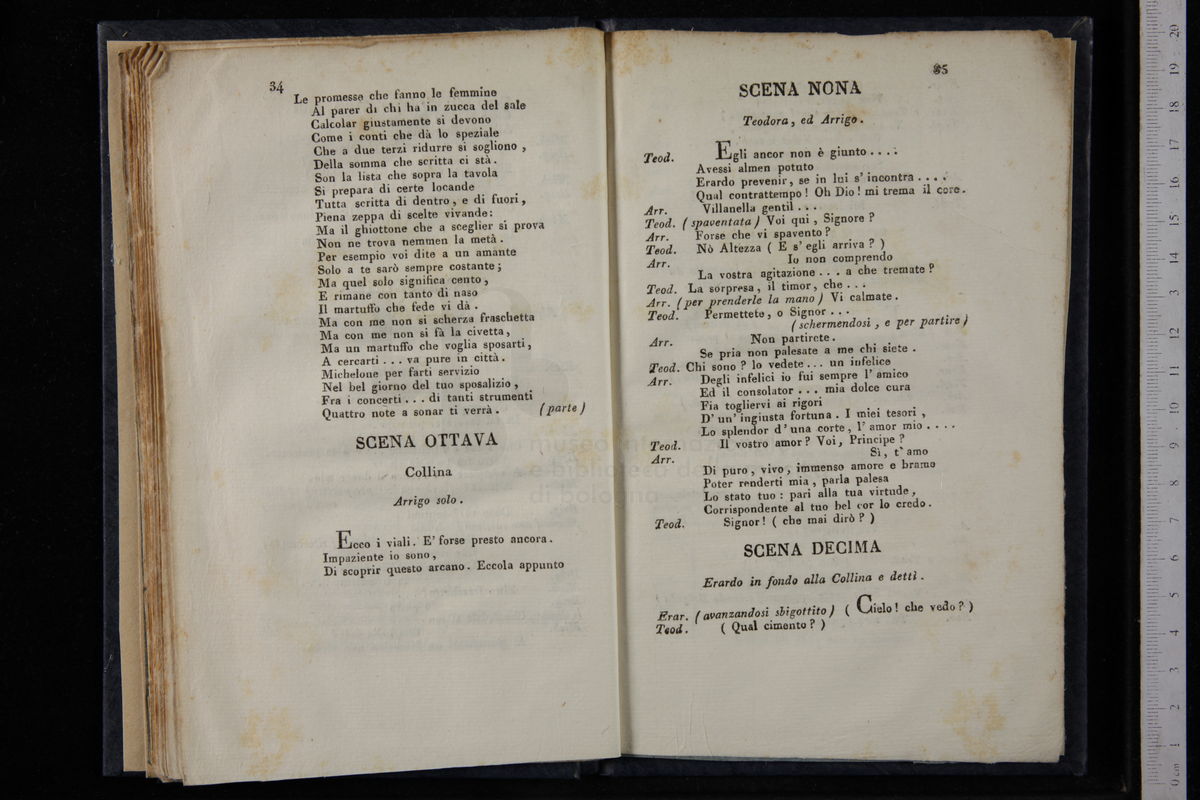 34
Le promesse che fanno le femmine
Al parer di chi ha in zucca del sale
Calcolar giustamente si devono
Come i conti che dà lo speziale
Che a due terzi ridurre si sogliono ,
Della somma che scritta ci stà .
Son la lista che sopra la tavola
Si prepara di certe locande
Tutta scritta di dentro , e di fuori ,
Piena zeppa di scelte vivande :
Ma il ghiottone che a sceglier si prova
Non ne trova nemmen la metà .
Per esempio voi dite a un amante
Solo a te sarò sempre costante ;
Ma quel solo significa cento ,
E rimane con tanto di naso
Il martuffo che fede vi dà .
Ma con me non si scherza fraschetta
Ma con me non si fà la civetta ,
Ma un martuffo che voglia sposarti ,
A cercarti . . . va pure in città .
Michelone per farti servizio
Nel bel giorno del tuo sposalizio ,
Fra i concerti . . . di tanti strumenti
Quattro note a sonar ti verrà . (parte)
SCENA OTTAVA
Collina
Arrigo solo .
Ecco i viali . E' forse presto ancora .
Impaziente io sono ,
Di scoprir questo arcano . Eccola appunto
35
SCENA NONA
Teodora , ed Arrigo .
Teod. Egli ancor non è giunto . . . .
Avessi almen potuto
Erardo prevenir , se in lui s' incontra . . . .
Qual contrattempo ! Oh Dio ! mi trema il core .
Arr. Villanella gentil . . .
Teod. (spaventata) Voi qui , Signore ?
Arr. Forse che vi spavento ?
Teod. Nò Altezza ( E s' egli arriva ? )
Arr. Io non comprendo
La vostra agitazione . . . a che tremate ?
Teod. La sorpresa , il timor , che . . .
Arr. (per prenderle la mano) Vi calmate .
Teod. Permettete , o Signor . . .
(schermendosi , e per partire)
Arr. Non partirete .
Se pria non palesate a me chi siete .
Teod. Chi sono ? lo vedete . . . un infelice
Arr. Degli infelici io fui sempre l' amico
Ed il consolator . . . mia dolce cura
Fia togliervi ai rigori
D' un' ingiusta fortuna . I miei tesori ,
Lo splendor d' una corte , l' amor mio . . . .
Teod. Il vostro amor ? Voi , Principe ?
Arr. Sì , t' amo
Di puro , vivo , immenso amore e bramo
Poter renderti mia , parla palesa
Lo stato tuo : pari alla tua virtude ,
Corrispondente al tuo bel cor lo credo .
Teod. Signor ! ( che mai dirò ? )
SCENA DECIMA
Erardo in fondo alla Collina e detti .
Erar. (avanzandosi sbigottito) ( Cielo ! che vedo ? )
Teod. ( Qual cimento ? )